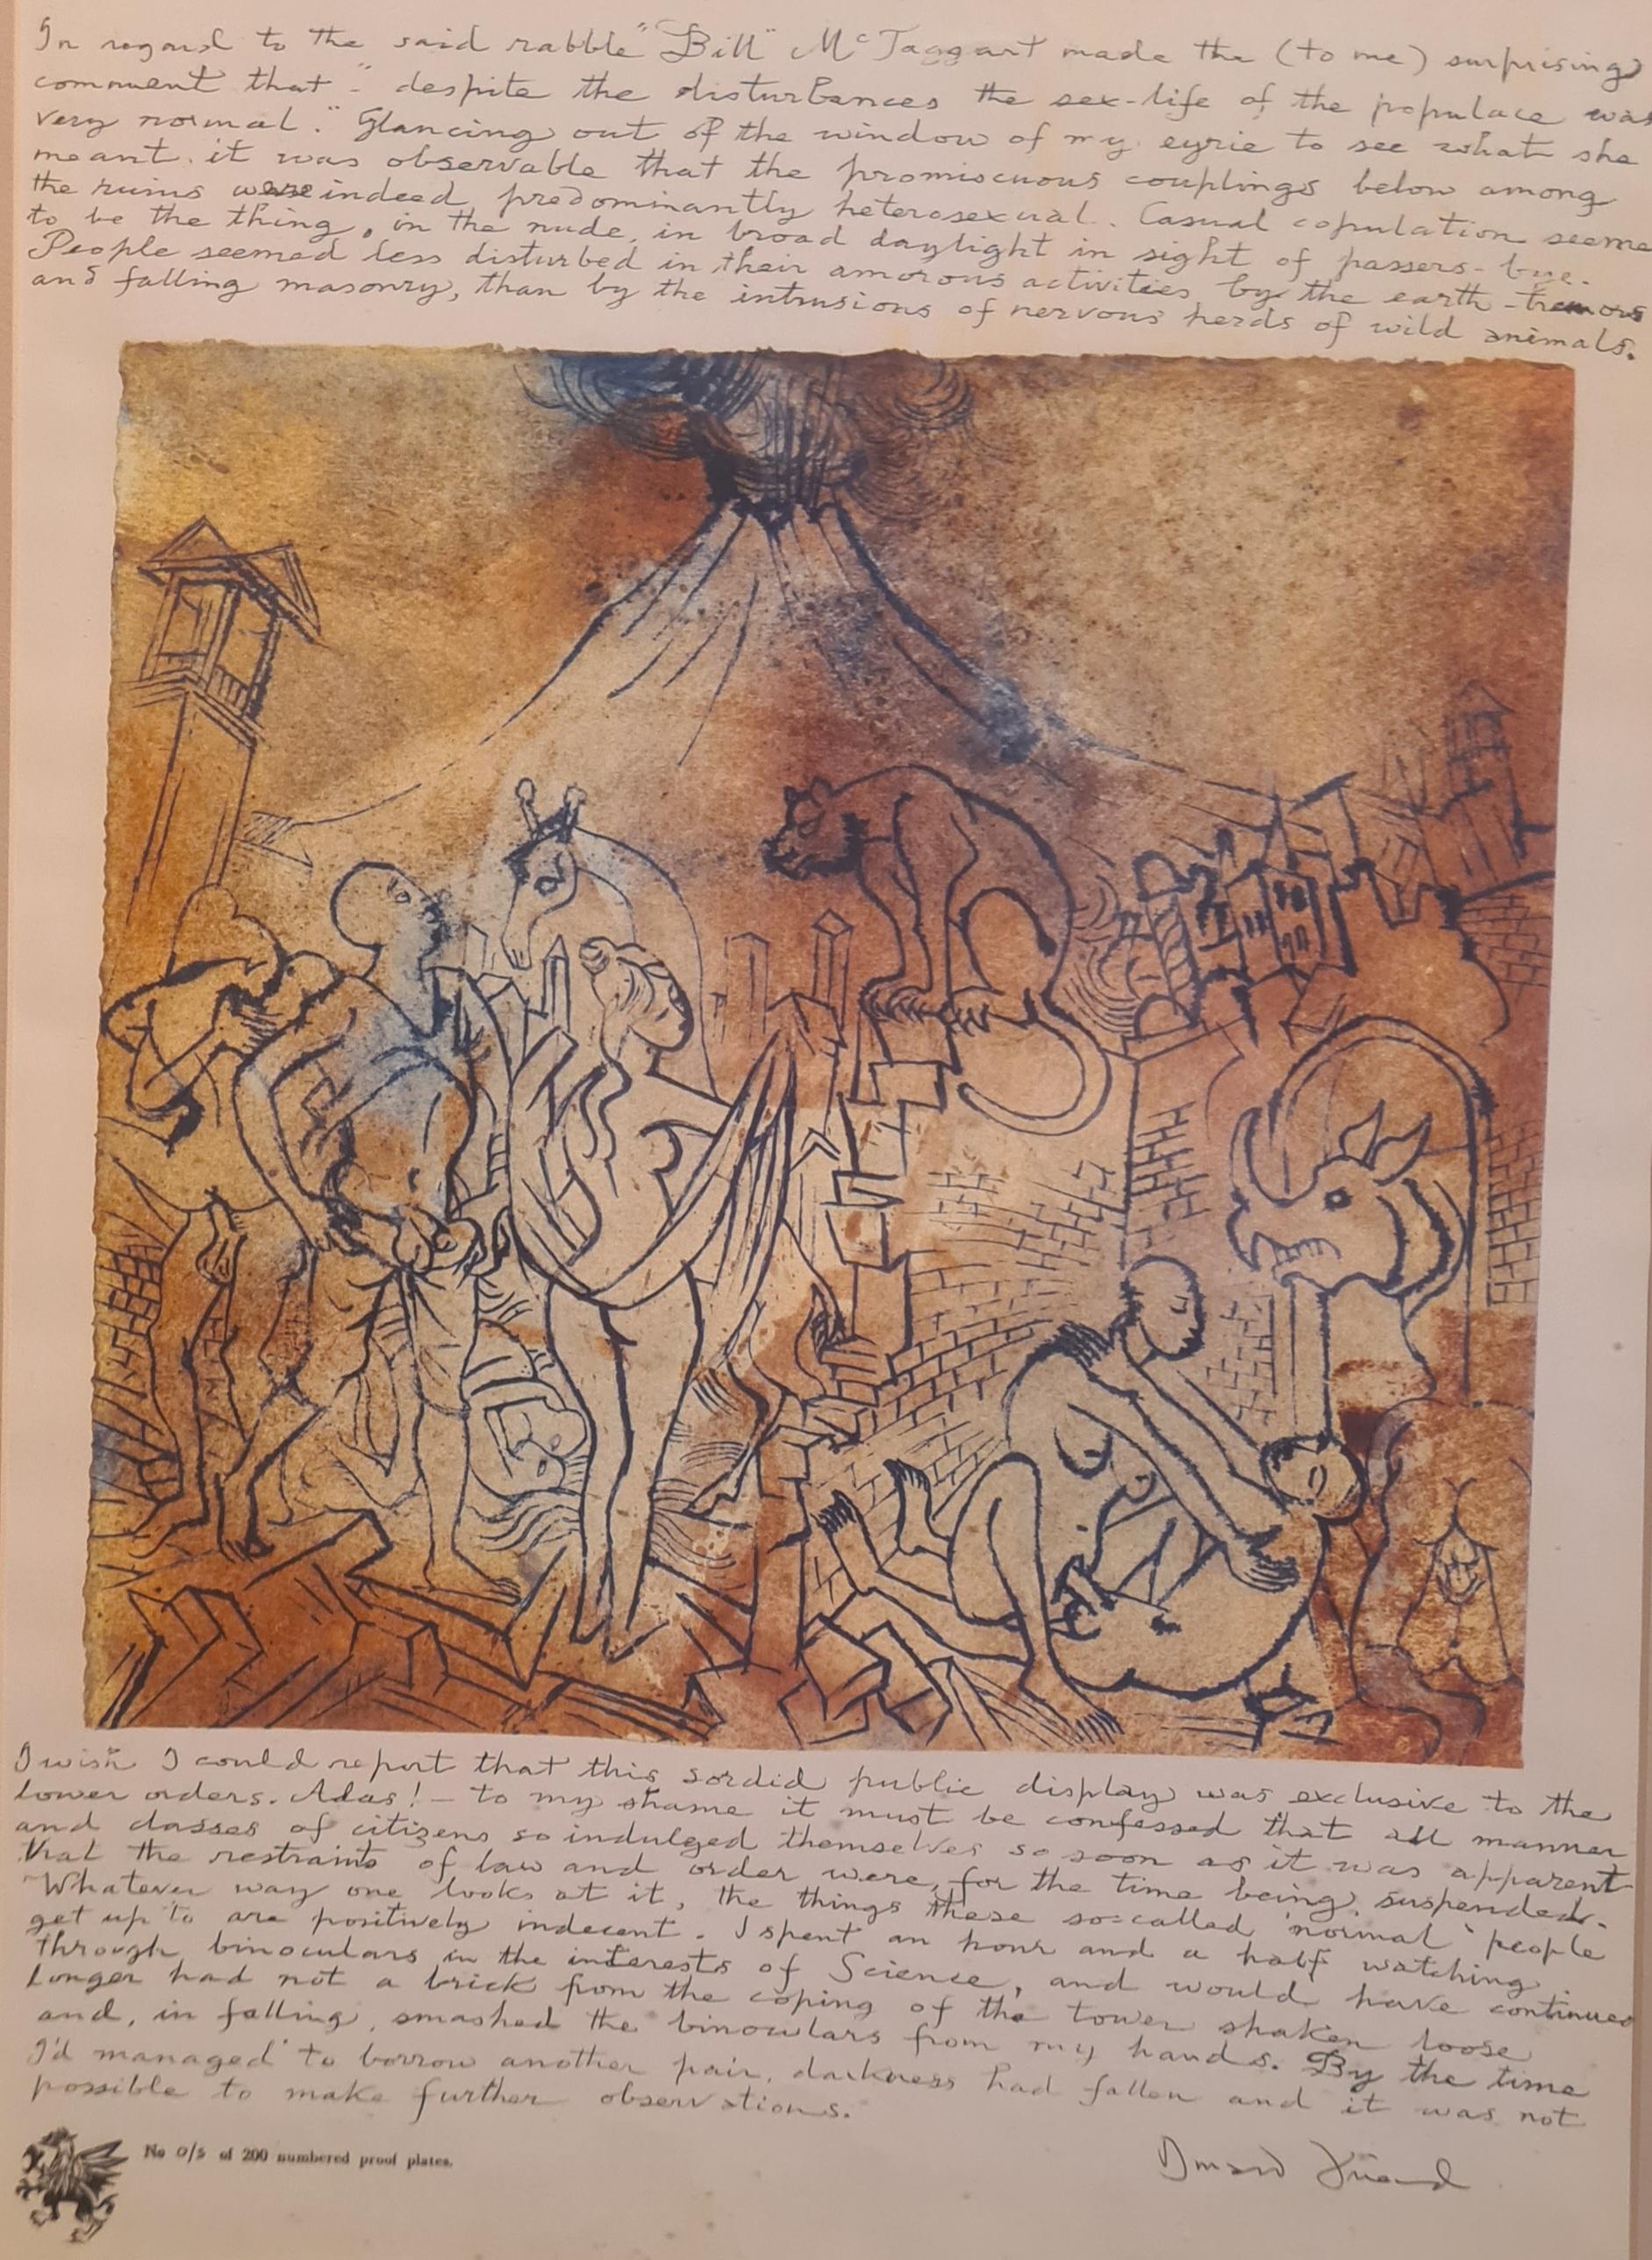 In regard to the said rabble "Bill" McTaggart made the (to me) surprising
comment that - "despite the disturbances the sex-life of the populace was
very normal." Glancing out of the window of my eyrie to see what she
meant. it was observable that the promiscuous couplings below among
the ruins were indeed predominantly heterosexual. Casual copulation seems
to be the thing, in the nude, in broad daylight in sight of passers-bye.
People seemed less disturbed in their amorous activities by the earth-tremors
and falling masonry, than by the intrusions of nervous herds of wild animals.
I wish I could report that this sordid public display was exclusive to the
lower orders. Alas! - to my shame it must be confessed that all manner
and classes of citizens so indulged themselves so soon as it was apparent
that the restraints of law and order were, for the time being, suspended.
Whatever way one looks at it, the things these so-called 'normal' people
get up to are positively indecent. I spent an hour and a half watching
through binoculars in the interests of Science, and would have continued
longer had not a brick from the coping of the tower shaken loose
and, in falling, smashed the binoculars from my hands. By the time
I'd managed to borrow another pair, darkness had fallen and it was not
possible to make further observations.
No 0/5 of 200 numbered proof plates.